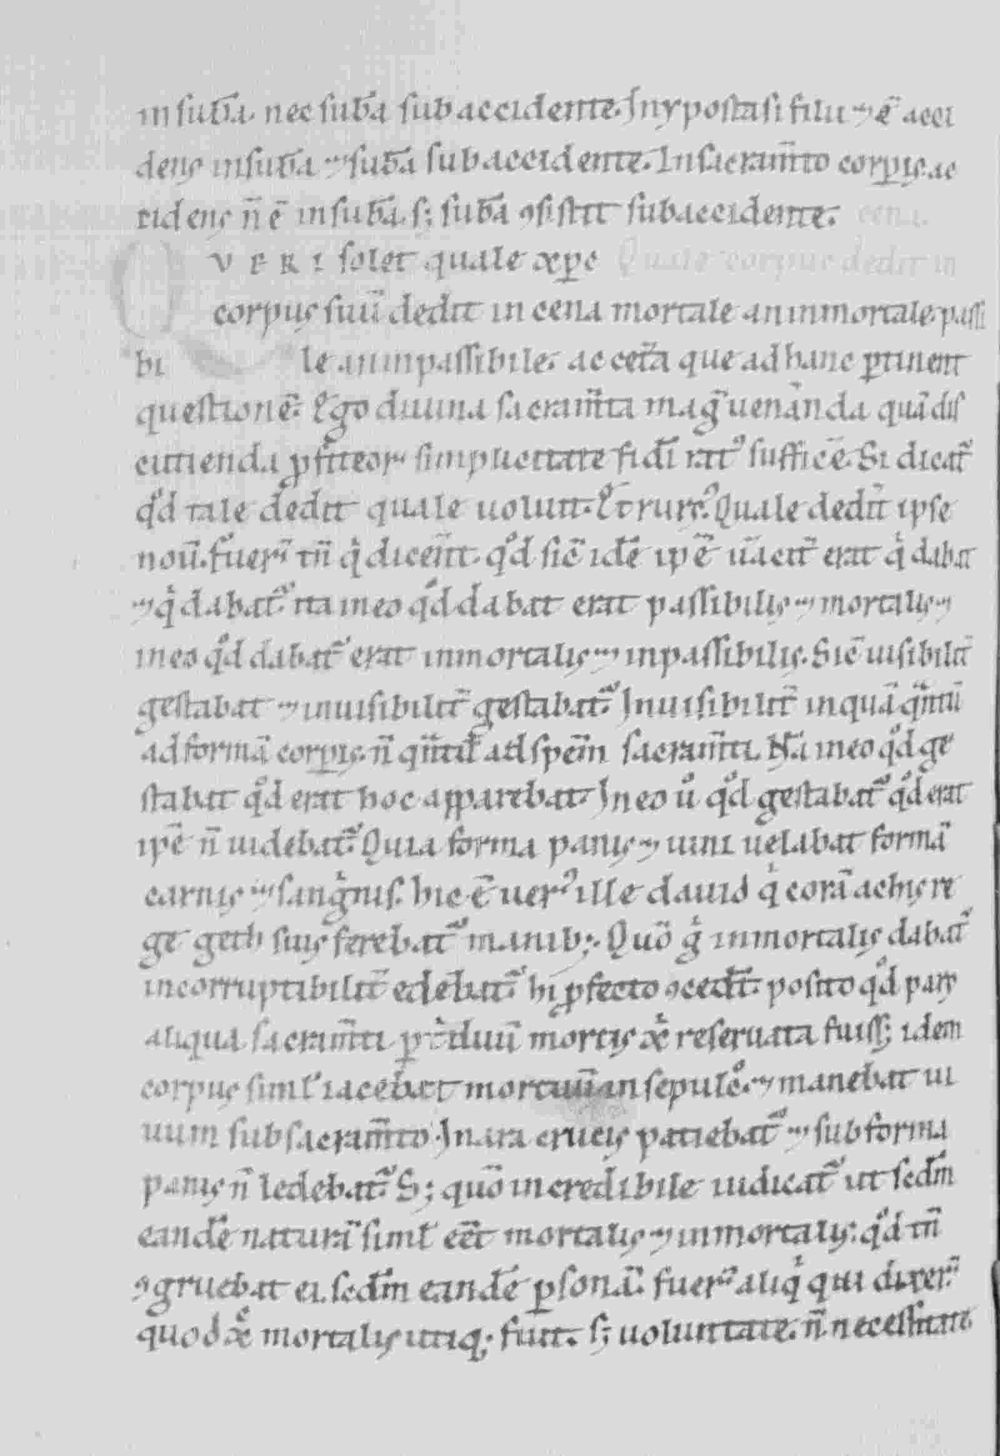 in sub̄a. nec sub̄a sub accidente. In ypostasi filii ⁊ ē acci
dens in sub̄a ⁊ sub̄a sub accidente. In sacram̄to corp̱is. ac
cidens n̄ ē in sub̄a. s; sub̄a ꝯsistit sub accidente. cena.
QVERI solet quale xp̄c Quale corpus dedit in
corpus suū dedit in cena mortale an inmortale. passi
bi le an inpassibile. ac cet̄a que ad hanc ꝑtinent
questionē. Ego diuina sacram̄ta mag̃ uenanda quā dis
cutienda ꝓfiteor. simplicitate fidī rat᷒ sufficē. Si dicat᷑
qͦd tale dedit quale uoluit. Et rurs᷒. Quale dedit ipse
nouit. fuer̄ tn̄ qͥ dicerēt. qͦd sic̄ idē ip̄e uacit̄ erat qͥ dabat
⁊ qͥ dabat᷑. ita in eo qͦd dabat erat passibilis ⁊ mortalis ⁊
in eo qͦd dabat᷑ erat inmortalis ⁊ inpassibilis. Sic̄ uisibilit̄
gestabat ⁊ inuisibilit̄ gestabat᷑. Inuisibilit̄ inquā qᷓntū
ad formā corp̱is. n̄ qᷓntū ad speciē sacram̄ti. Nā in eo qͦd ge
stabat qͦd erat hoc apparebat. In eo u̾ qͦd gestabat᷑ qͦd erat
ip̄e n̄ uidebat᷑. Quia forma panis ⁊ uini uelabat formā
carnis ⁊ sangͥnis. hic ē uer᷒ ille dauid qͥ corā achis re
ge geth suis ferebat᷑ manib;. Quō gͥ inmortalis dabat᷑
incorruptibilit̄ edebat᷑. hi ꝓfecto ꝯcedūt. posito qͦd pars
aliqua sacram̄ti ꝑ tͥduū mortis xͥ reseruata fuiss; idem
corpus siml̾ iacebat mortuū in sepulcͦ. ⁊ manebat ui
uum sub sacram̄to. In ara crucis patiebat᷑ ⁊ sub forma
panis n̄ ledebat᷑. S; quō incredibile iudicat᷑ ut scdm̄
eandē naturā siml̾ eēt mortalis ⁊ inmortalis: qͦd tn̄
ꝯgruebat ei. scdm̄ eandē ꝑsonā. fuer̄ aliqͥ qui dixer̄
quod xͨ mortalis utiq; fuit. s; uoluntate. n̄ necessitate